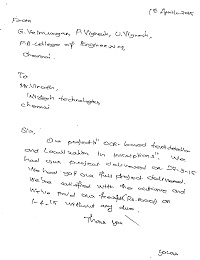 1st April, 2015
From
G. Velmurugan, P. Vignesh, U. Vignesh,
P.B. College of Engineering
Chennai.
To
Mr. Vinoth,
Wisgen technologies
chennai
Sir,
Our project is "OCR based text detection
and Localization in Inscriptions". We
had our project delivered on 30-3-15
We had got our full project delivered.
We're satisfied with the outcome and
We've paid our fees of (Rs.8000) on
1-4-15 without any due.
Thank you
yours